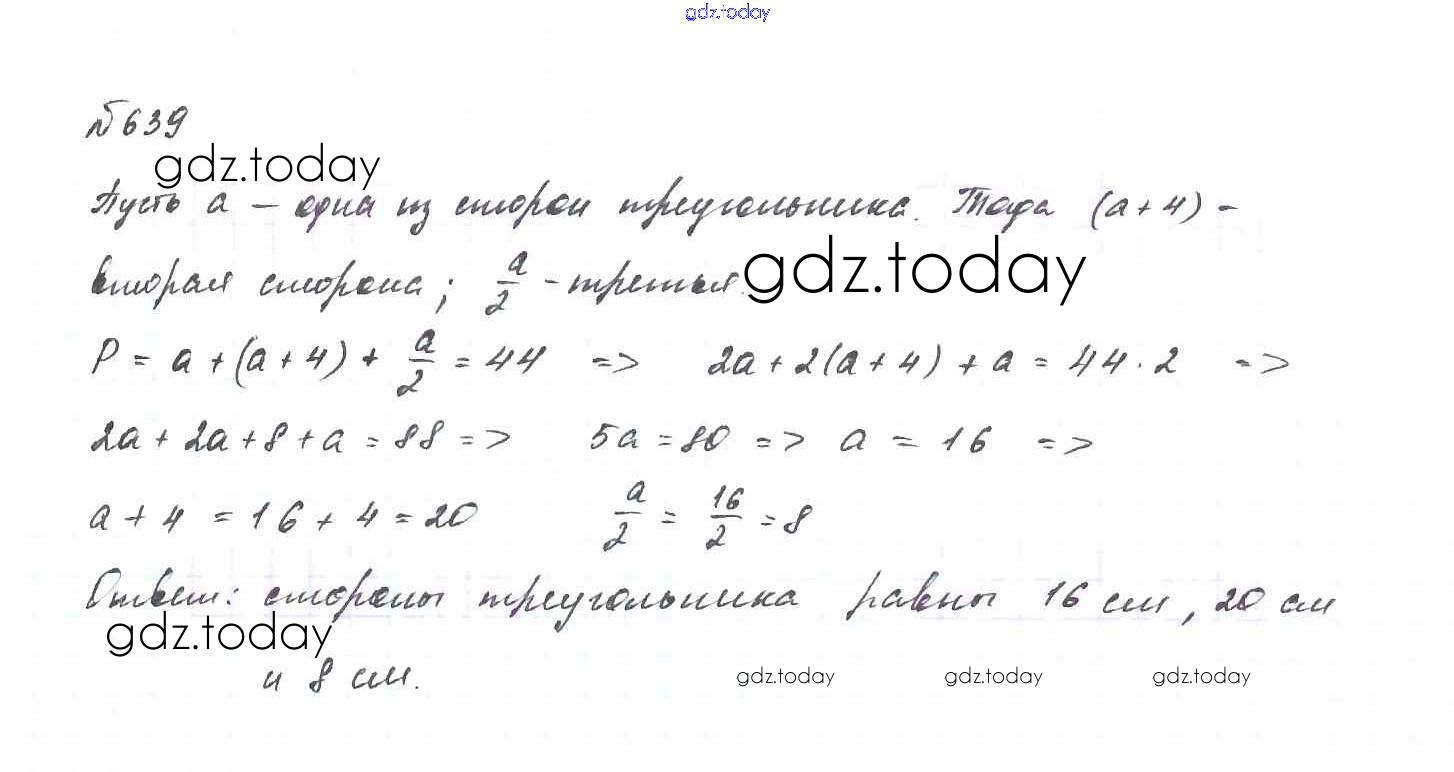 gdz.today
№639
gdz.today
Пусть a – одна из сторон треугольника. Тогда (a+4) –
вторая сторона; a/2 – третья.
gdz.today
P = a + (a+4) + a/2 = 44 => 2a + 2(a+4) + a = 44·2 =>
2a + 2a + 8 + a = 88 => 5a = 80 => a = 16 =>
a + 4 = 16 + 4 = 20 a/2 = 16/2 = 8
Ответ: стороны треугольника равны 16 см, 20 см
gdz.today
и 8 см.
gdz.today gdz.today gdz.today